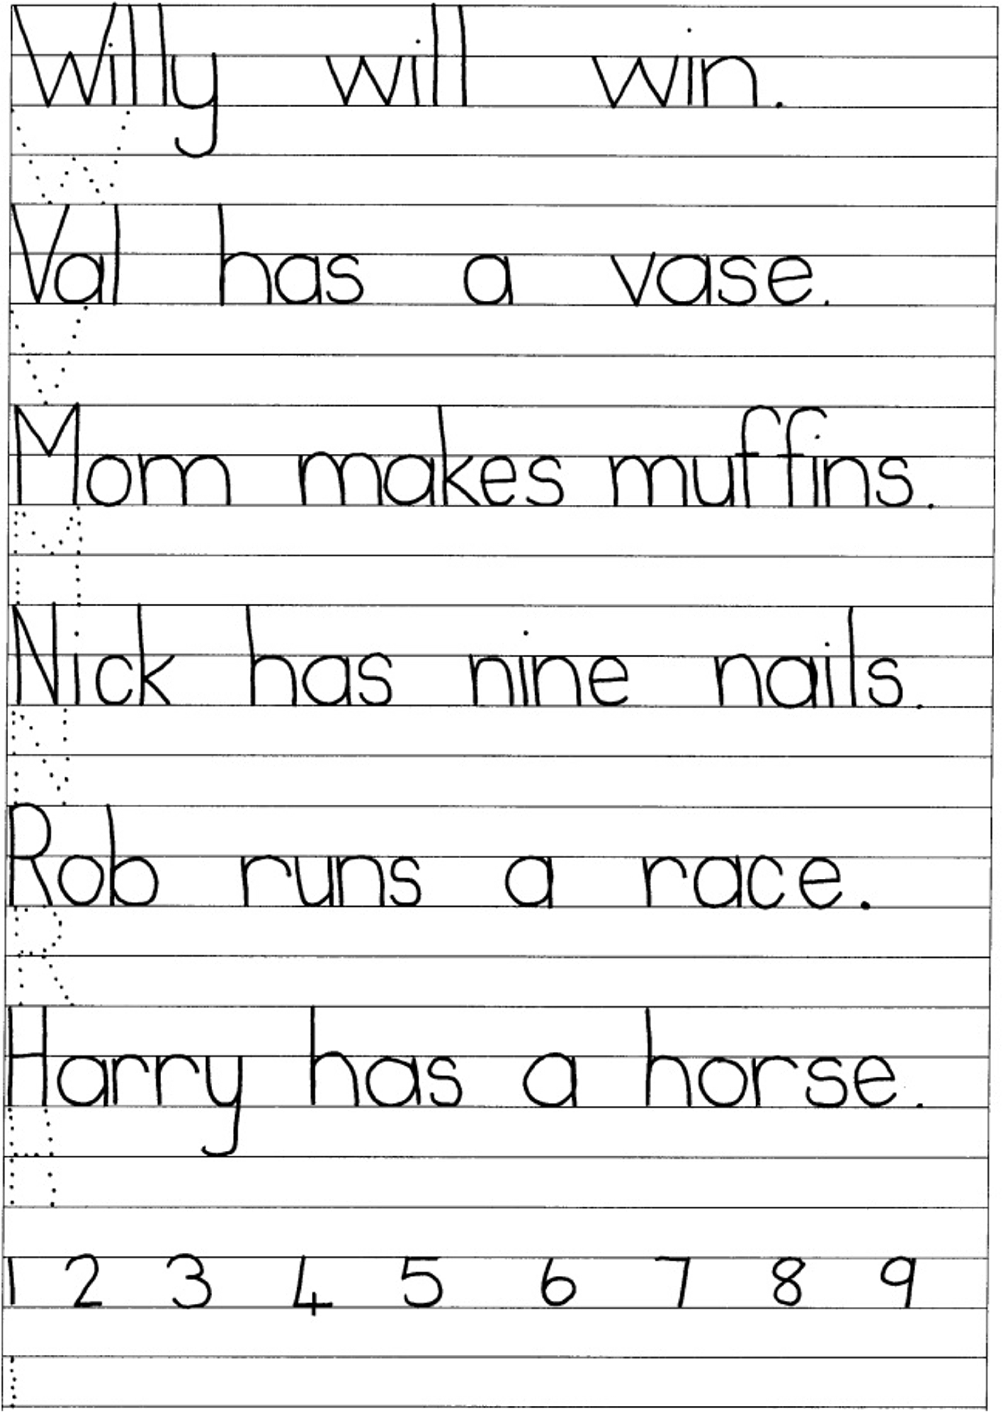 Willy will win.
W
Val has a vase.
V
Mom makes muffins.
M
Nick has nine nails.
N
Rob runs a race.
R
Harry has a horse.
H
1 2 3 4 5 6 7 8 9
1